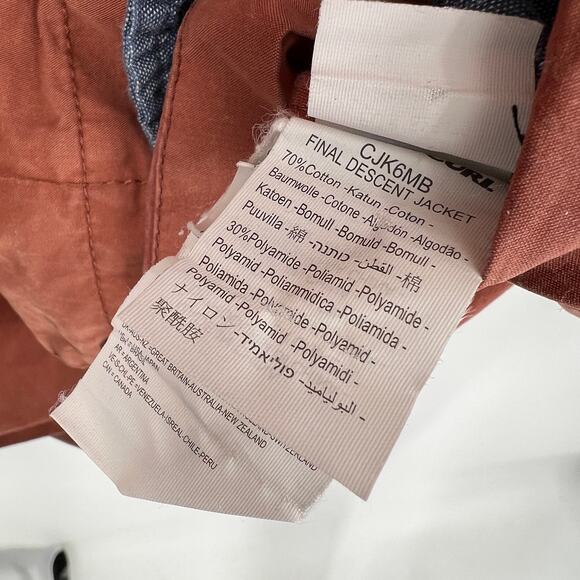 CURL
CJK6MB
FINAL DESCENT JACKET
70%Cotton -Katun -Coton -
Baumwolle -Cotone -Algodón -Algodão -
Katoen -Bomull -Bomuld -Bomull -
Puuvilla -綿 -כותנה -القطن -棉
30%Polyamide -Poliamid -Polyamide -
Polyamid -Poliammidica -Poliamida -
Poliamida -Polyamide -Polyamide -
Polyamid -Polyamid -Polyamidi -
ナイロン -פוליאמיד -البولياميد -
聚酰胺
=GREAT BRITAIN-AUSTRALIA-NEW ZEALAND
AND SWITZERLAND
AR = ARGENTINA
VE-IS-CHL-PE =VENEZUELA-ISREAL-CHILE-PERU
CAN = CANADA